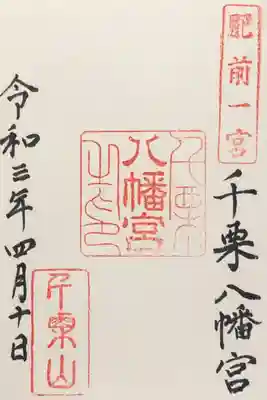 肥前一宮
千栗八幡宮
八幡宮
千栗山
令和三年四月十日